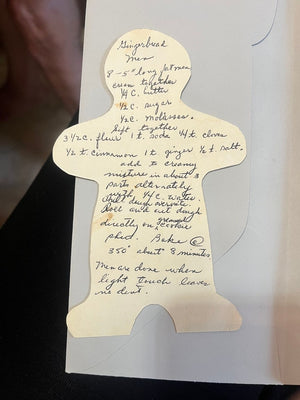 Gingerbread
Men
8 - 5" long fat men
cream together
1/4 C. butter
1/2 C. sugar
1/2 C. molasses.
Sift together
3 1/2 C. flour 1 t. soda 1/4 t. cloves
1/2 t. cinnamon 1 t ginger 1/2 t. salt.
add to creamy
mixture in about 3
parts alternately
with 1/4 C. water.
Chill dough overnite
Roll and cut dough
directly on greased cookie
sheet. Bake @
350° about 8 minutes
Men are done when
light touch leaves
no dent.